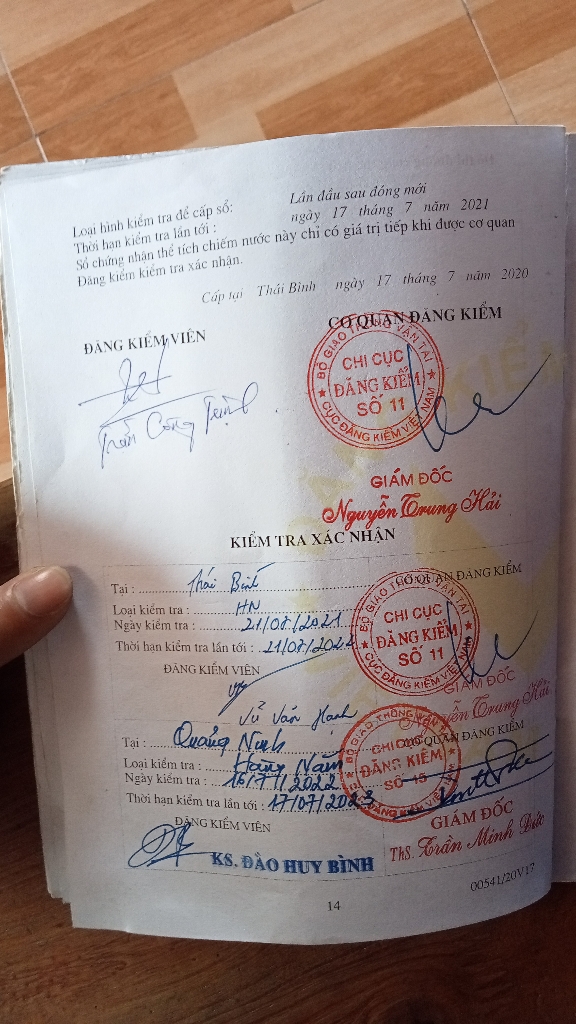 Loại hình kiểm tra để cấp sổ: Lần đầu sau đóng mới
Thời hạn kiểm tra lần tới : ngày 17 tháng 7 năm 2021
Sổ chứng nhận thể tích chiếm nước này chỉ có giá trị tiếp khi được cơ quan
Đăng kiểm kiểm tra xác nhận.
Cấp tại Thái Bình ngày 17 tháng 7 năm 2020
ĐĂNG KIỂM VIÊN CƠ QUAN ĐĂNG KIỂM
BỘ GIAO THÔNG VẬN TẢI
CHI CỤC
ĐĂNG KIỂM
SỐ 11
CỤC ĐĂNG KIỂM VIỆT NAM
Trần Công Trịnh
GIÁM ĐỐC
Nguyễn Trung Hải
KIỂM TRA XÁC NHẬN
Tại : Thái Bình CƠ QUAN ĐĂNG KIỂM
Loại kiểm tra : HN
Ngày kiểm tra : 21/07/2021
Thời hạn kiểm tra lần tới : 21/07/2022
BỘ GIAO THÔNG VẬN TẢI
CHI CỤC
ĐĂNG KIỂM
SỐ 11
CỤC ĐĂNG KIỂM VIỆT NAM
ĐĂNG KIỂM VIÊN
GIÁM ĐỐC
Nguyễn Trung Hải
Vũ Văn Hạnh
Tại : Quảng Ninh CƠ QUAN ĐĂNG KIỂM
Loại kiểm tra : Hàng Năm
Ngày kiểm tra : 16/7/2022
Thời hạn kiểm tra lần tới : 17/07/2023
BỘ GIAO THÔNG VẬN TẢI
CHI CỤC
ĐĂNG KIỂM
SỐ 15
ĐĂNG KIỂM VIÊN
GIÁM ĐỐC
KS. ĐÀO HUY BÌNH
ThS. Trần Minh Đức
00541/20V17
14